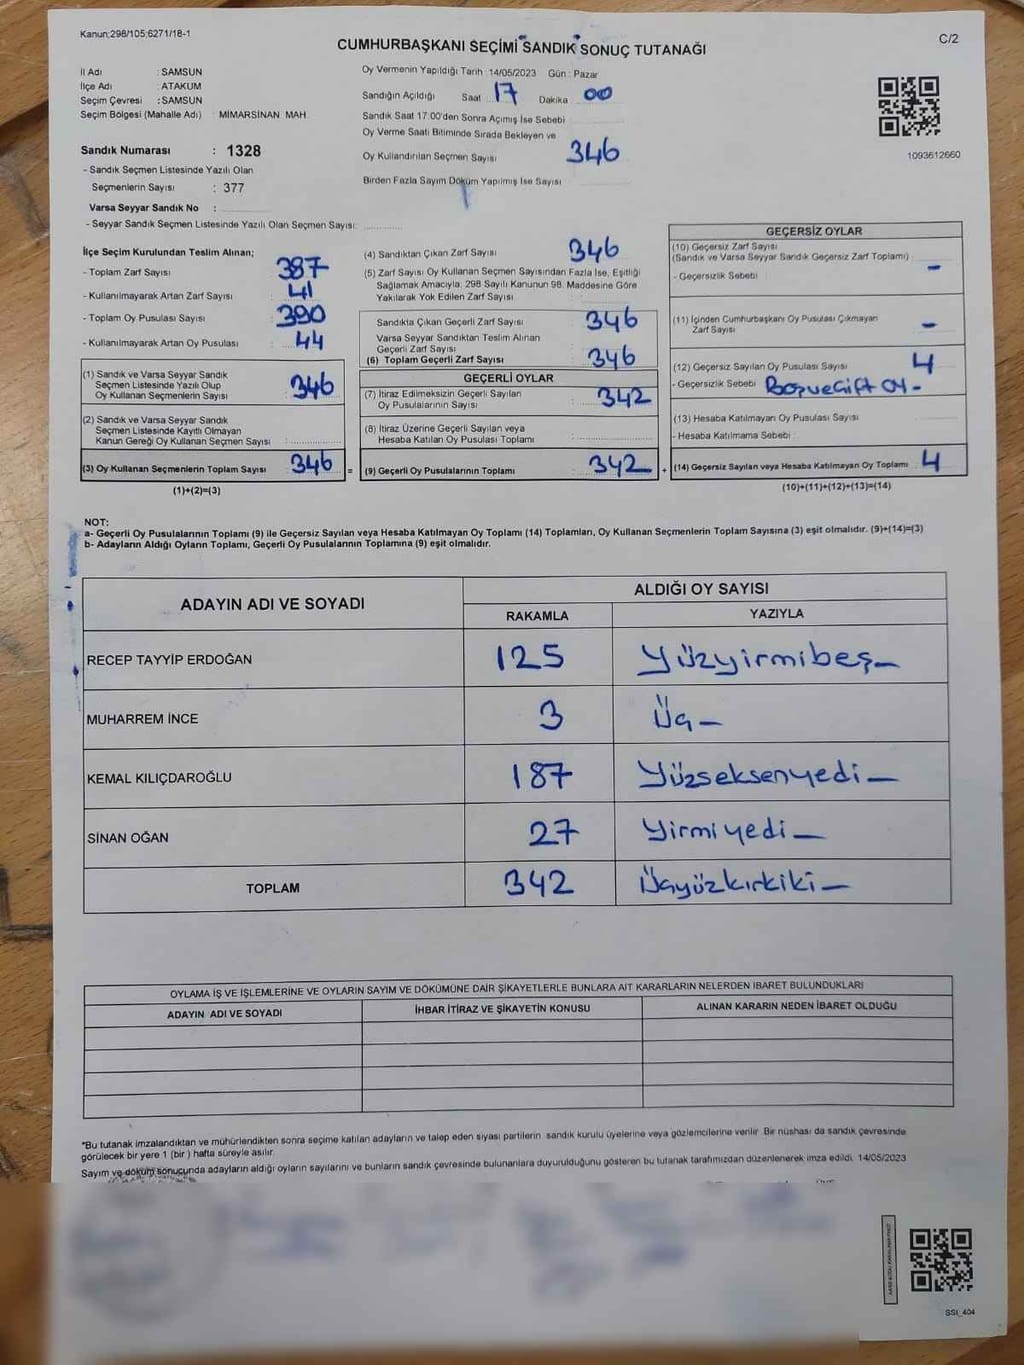 Kanun;298/105;6271/18-1
CUMHURBAŞKANI SEÇİMİ SANDIK SONUÇ TUTANAĞI
C/2
İl Adı : SAMSUN
İlçe Adı : ATAKUM
Seçim Çevresi : SAMSUN
Seçim Bölgesi (Mahalle Adı) : MİMARSİNAN MAH.
Sandık Numarası : 1328
- Sandık Seçmen Listesinde Yazılı Olan
Seçmenlerin Sayısı : 377
Varsa Seyyar Sandık No :
- Seyyar Sandık Seçmen Listesinde Yazılı Olan Seçmen Sayısı:
Oy Vermenin Yapıldığı Tarih : 14/05/2023 Gün : Pazar
Sandığın Açıldığı Saat 17 Dakika 00
Sandık Saat 17.00'den Sonra Açımış İse Sebebi
Oy Verme Saati Bitiminde Sırada Bekleyen ve
Oy Kullandırılan Seçmen Sayısı 346
Birden Fazla Sayım Döküm Yapılmış İse Sayısı
1093612660
İlçe Seçim Kurulundan Teslim Alınan;
- Toplam Zarf Sayısı 387
- Kullanılmayarak Artan Zarf Sayısı : 41
- Toplam Oy Pusulası Sayısı : 390
- Kullanılmayarak Artan Oy Pusulası : 44
(1) Sandık ve Varsa Seyyar Sandık
Seçmen Listesinde Yazılı Olup
Oy Kullanan Seçmenlerin Sayısı : 346
(2) Sandık ve Varsa Seyyar Sandık
Seçmen Listesinde Kayıtlı Olmayan
Kanun Gereği Oy Kullanan Seçmen Sayısı
(3) Oy Kullanan Seçmenlerin Toplam Sayısı 346 =
(1)+(2)=(3)
(4) Sandıktan Çıkan Zarf Sayısı : 346
(5) Zarf Sayısı Oy Kullanan Seçmen Sayısından Fazla İse, Eşitliği
Sağlamak Amacıyla, 298 Sayılı Kanunun 98. Maddesine Göre
Yakılarak Yok Edilen Zarf Sayısı
Sandıkta Çıkan Geçerli Zarf Sayısı : 346
Varsa Seyyar Sandıktan Teslim Alınan
Geçerli Zarf Sayısı
(6) Toplam Geçerli Zarf Sayısı : 346
GEÇERLİ OYLAR
(7) İtiraz Edilmeksizin Geçerli Sayılan
Oy Pusulalarının Sayısı : 342
(8) İtiraz Üzerine Geçerli Sayılan veya
Hesaba Katılan Oy Pusulası Toplamı
(9) Geçerli Oy Pusulalarının Toplamı : 342 +
GEÇERSİZ OYLAR
(10) Geçersiz Zarf Sayısı
(Sandık ve Varsa Seyyar Sandık Geçersiz Zarf Toplamı) :
- Geçersizlik Sebebi : -
(11) İçinden Cumhurbaşkanı Oy Pusulası Çıkmayan
Zarf Sayısı -
(12) Geçersiz Sayılan Oy Pusulası Sayısı : 4
- Geçersizlik Sebebi : Boş ve Çift oy -
(13) Hesaba Katılmayan Oy Pusulası Sayısı
- Hesaba Katılmama Sebebi :
(14) Geçersiz Sayılan veya Hesaba Katılmayan Oy Toplamı : 4
(10)+(11)+(12)+(13)=(14)
NOT:
a- Geçerli Oy Pusulalarının Toplamı (9) ile Geçersiz Sayılan veya Hesaba Katılmayan Oy Toplamı (14) Toplamları, Oy Kullanan Seçmenlerin Toplam Sayısına (3) eşit olmalıdır. (9)+(14)=(3)
b- Adayların Aldığı Oyların Toplamı, Geçerli Oy Pusulalarının Toplamına (9) eşit olmalıdır.
ADAYIN ADI VE SOYADI
ALDIĞI OY SAYISI
RAKAMLA YAZIYLA
RECEP TAYYİP ERDOĞAN 125 Yüzyirmibeş -
MUHARREM İNCE 3 Üç -
KEMAL KILIÇDAROĞLU 187 Yüzseksenyedi -
SİNAN OĞAN 27 Yirmiyedi -
TOPLAM 342 Üçyüzkırkiki -
OYLAMA İŞ VE İŞLEMLERİNE VE OYLARIN SAYIM VE DÖKÜMÜNE DAİR ŞİKAYETLERLE BUNLARA AİT KARARLARIN NELERDEN İBARET BULUNDUKLARI
ADAYIN ADI VE SOYADI İHBAR İTİRAZ VE ŞİKAYETİN KONUSU ALINAN KARARIN NEDEN İBARET OLDUĞU
*Bu tutanak imzalandıktan ve mühürlendikten sonra seçime katılan adayların ve talep eden siyasi partilerin sandık kurulu üyelerine veya gözlemcilerine verilir. Bir nüshası da sandık çevresinde
görülecek bir yere 1 (bir) hafta süreyle asılır.
Sayım ve döküm sonucunda adayların aldığı oyların sayılarını ve bunların sandık çevresinde bulunanlara duyurulduğunu gösteren bu tutanak tarafımızdan düzenlenerek imza edildi. 14/05/2023
SSI_404